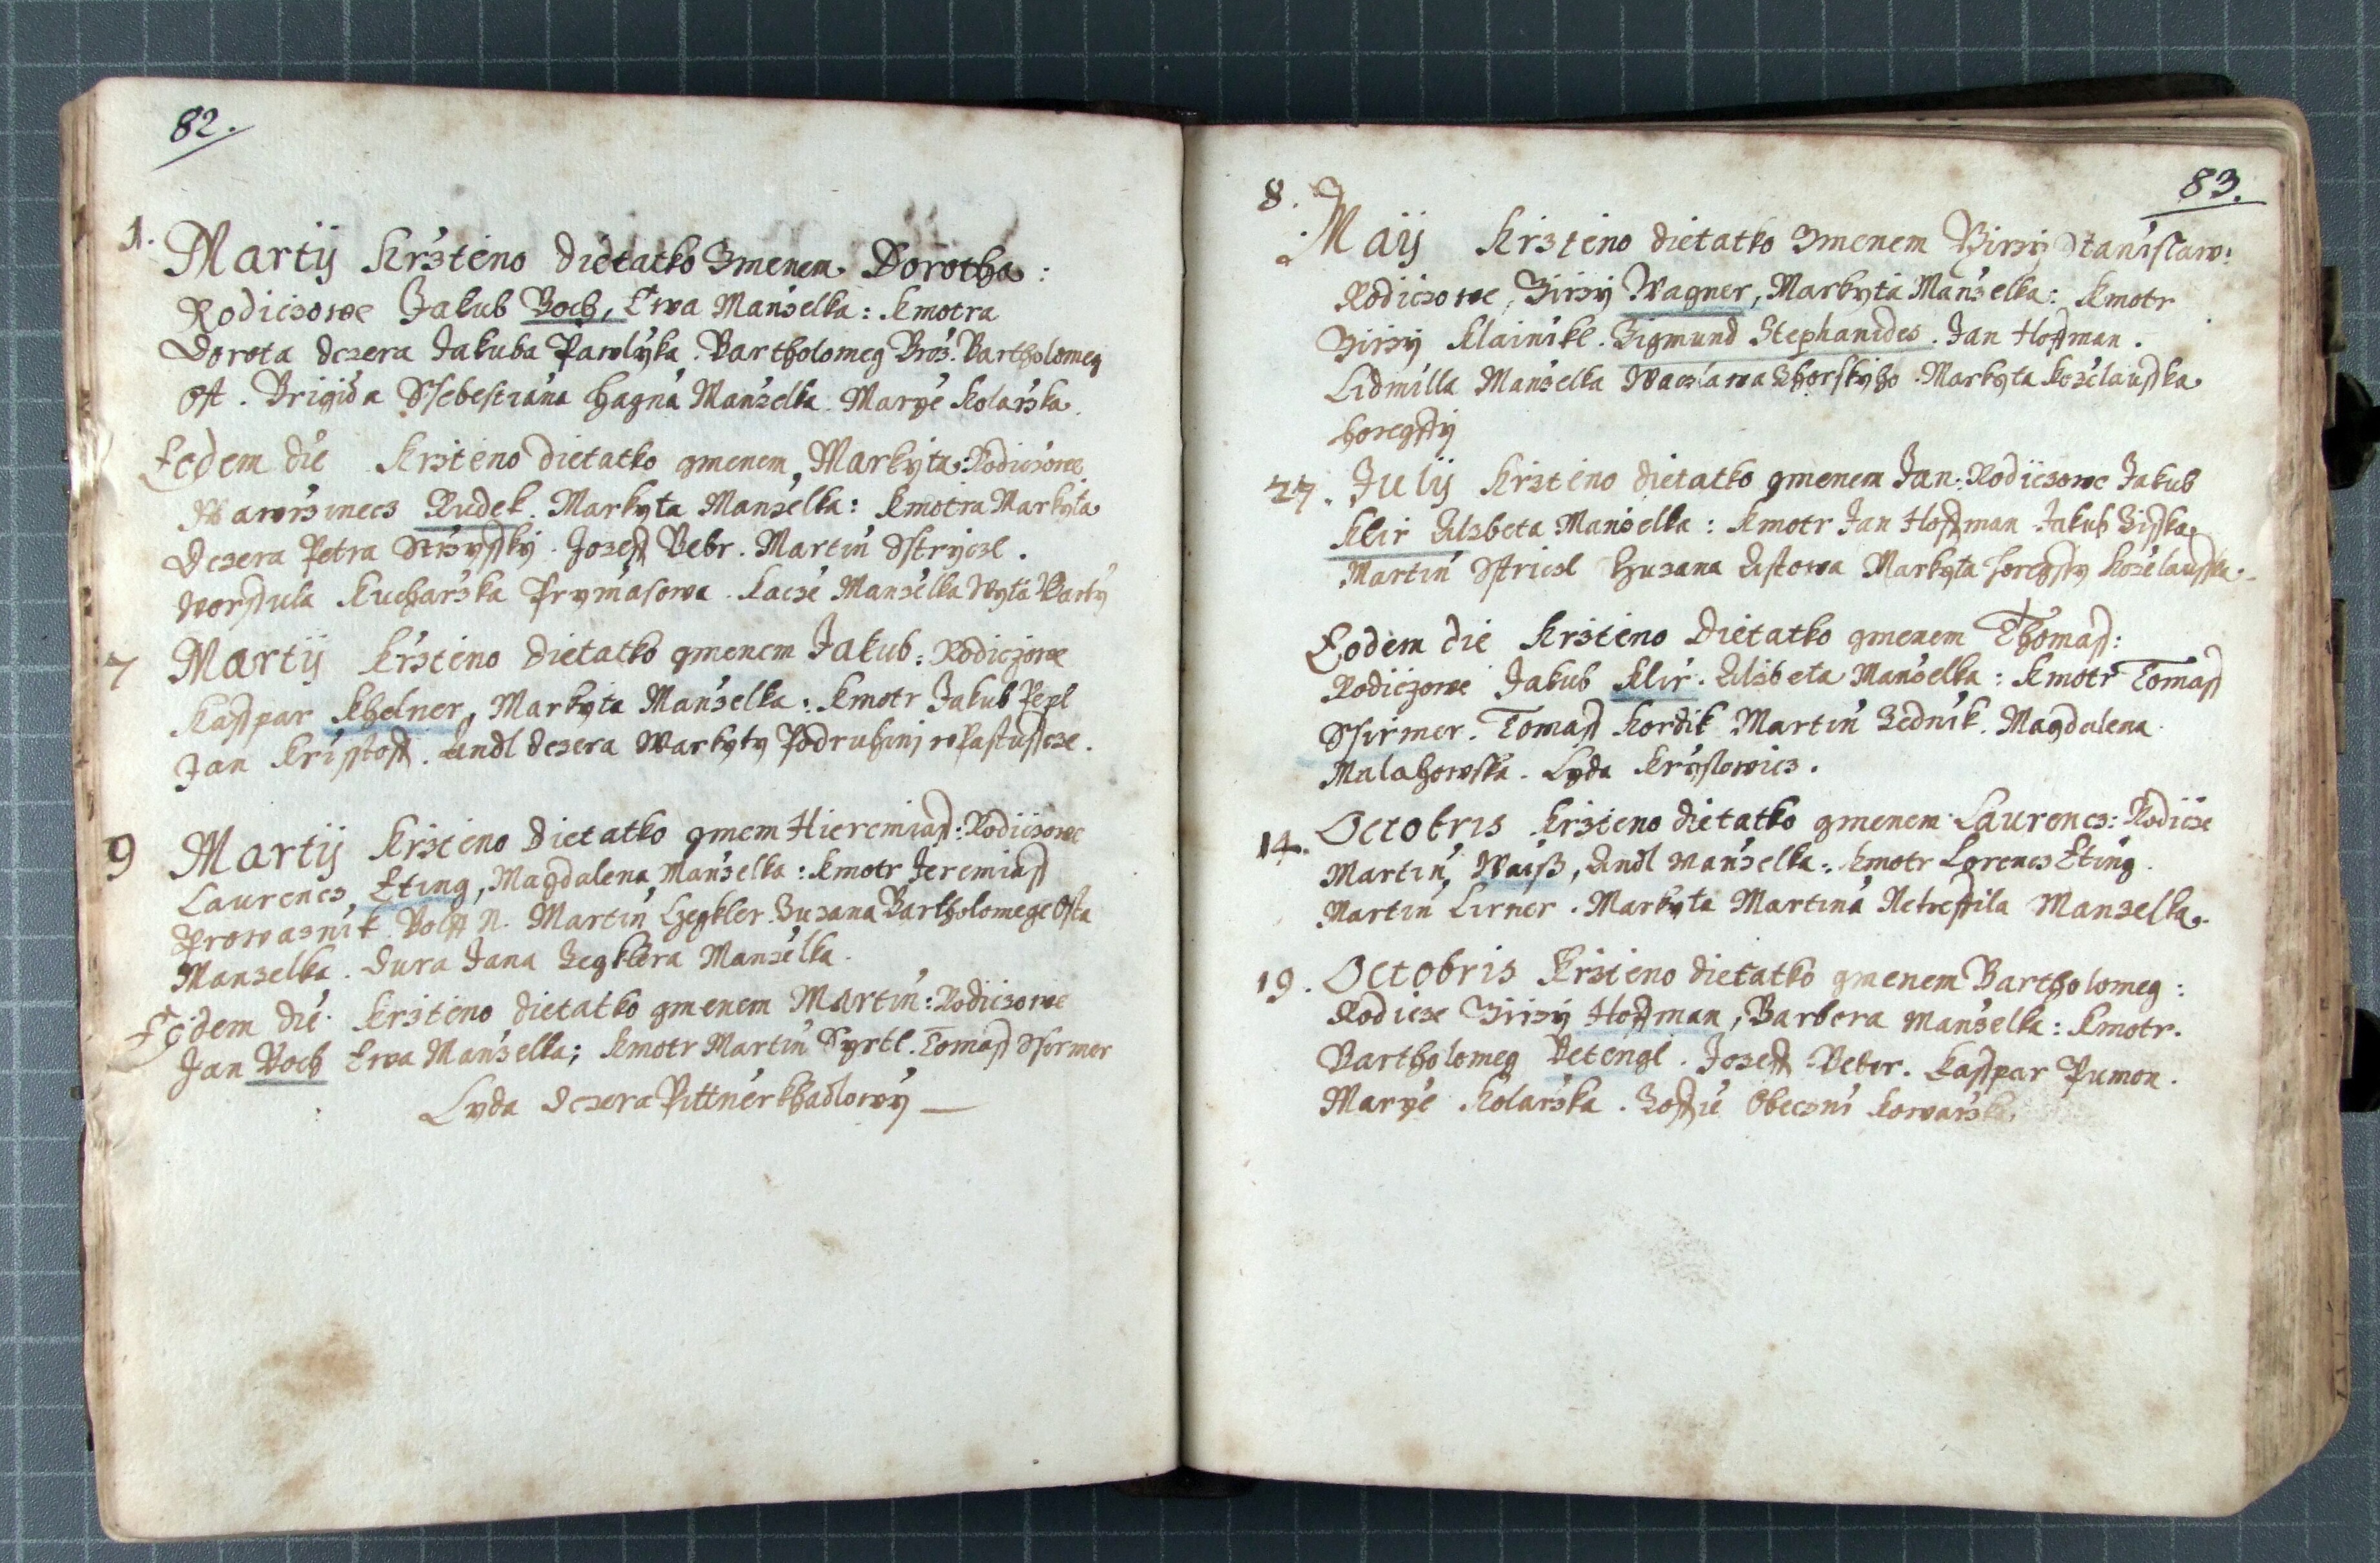 82.
1. Martij Krsteno dietatko Gmenem Dorotha:
Rodiczowe Jakub Boch, Ewa Manzelka: Kmotra
Dorota dczera Jakuba Pawlyka. Bartholomeg Broz. Bartholomeg
Ost. Brigida Ssebestiana Hagna Manzelka. Marye Kolarska.
Eodem die Krzteno dietatko gmenem Markyta: Rodiczowe
Wawrzinecz Rudek. Markyta Manzelka: Kmotra Markyta
Dczera Petra Jozeff Bebr. Martin Sstryczl.
Worssula Kucharska Prymasowa. Kacze Manzelka
7 Martij Krzteno dietatko gmenem Jakub: Rodiczowe
Casspar Khelner, Markyta Manzelka: Kmotr Jakub Pepl
Jan Krisstoff. Andl dczera Markyty Podruhinj
9 Martij Krzteno dietatko gmem Hieremiass: Rodiczowe
Laurencz Eting, Magdalena Manzelka: Kmotr Jeremiass
Prowaznik. Wolff N. Martin Czegkler. Zuzana Bartholomege Osta
Manzelka. Dura Jana Zegklera Manzelka.
Eodem die Krzteno dietatko gmenem Martin: Rodiczowe
Jan Boch Ewa Manzelka; Kmotr Martin Syrtl. Tomass Ssirmer
Lyda dczera
83.
8. Maij Krzteno dietatko Gmenem Girzy Stanislaw:
Rodiczowe, Girzy Wagner, Markyta Manzelka: Kmotr
Girzy Klainikl. Zigmund Stephanides. Jan Hoffman.
Lidmilla Manzelka Waczlawa Zhorskyho. Markyta Kozelausska
horegssy
27. Julij Krzteno dietatko gmenem Jan: Rodiczowe Jakub
Klir Alzbeta Manzelka: Kmotr Jan Hoffman Jakub Zisska
Martin Sstriczl Zuzana Astowa Markyta horegssy Kozelausska.
Eodem die Krzteno Dietatko gmenem Thomass:
Rodiczowe Jakub Klir. Alzbeta Manzelka: Kmotr Tomass
Ssirmer. Tomass Kordik Martin Zednik. Magdalena
Malahowska. Lyda Kryslowicz.
14. Octobris Krzteno dietatko gmenem Laurencz: Rodicze
Martin, Waiß, Andl manzelka: Kmotr Lorencz Eting.
Martin Lirner. Markyta Martina Netressila Manzelka.
19. Octobris Krzteno dietatko gmenem Bartholomeg:
Rodicze Girzy Hoffman, Barbora manzelka: Kmotr.
Bartholomeg Detengl. Jozeff Bebr. Casspar Pumon.
Marye Kolarska. Zoffie Obeczni Kowarska.